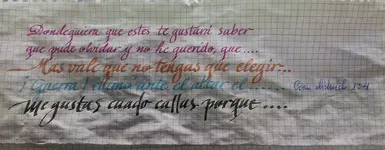 Dondequiera que estes te gustará saber
que pude olvidar y no he querido, que ....
Mas vale que no tengas que elegir...
ante el altar
Me gustas cuado callas porque ....